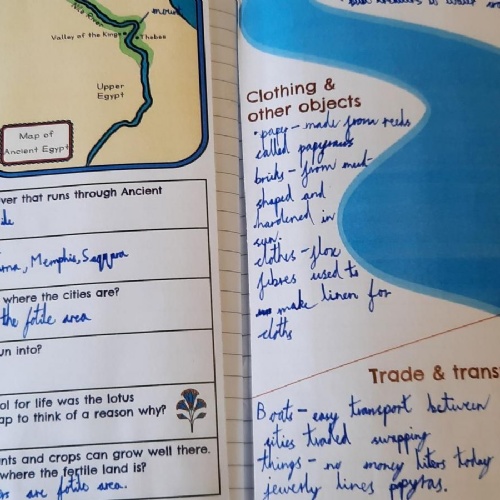 Nile River
Valley of the Kings
Thebes
Upper
Egypt
Map of
Ancient Egypt
ver that runs through Ancient
ile
, Memphis, Saqqara
where the cities are?
the fotile area
un into?
ol for life was the lotus
ap to think of a reason why?
nts and crops can grow well there.
where the fertile land is?
are fotile area.
Clothing &
other objects
• papy - made from reeds
called
bricks - from mud -
shaped and
hardened in
sun.
cloths - flax
fibres used to
make linen for
cloths
Trade & trans
Boats - easy transport between
cities traded swapping
things - no money liters today
jewerly lines